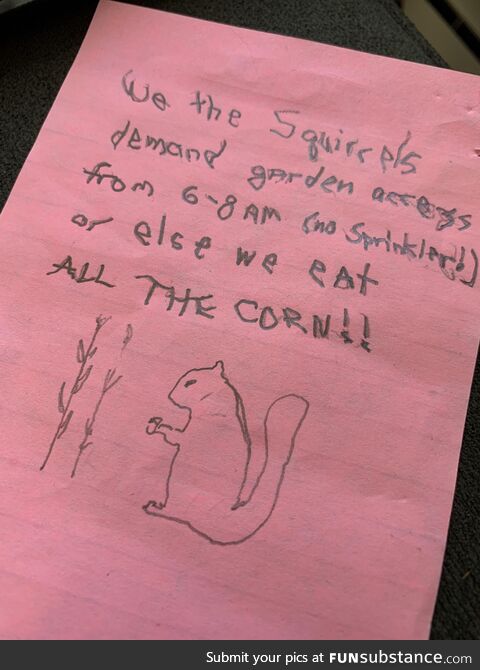 We the Squirrels
demand garden access
from 6-8 AM (no Sprinklers!)
or else we eat
ALL THE CORN!!
Submit your pics at FUNsubstance.com